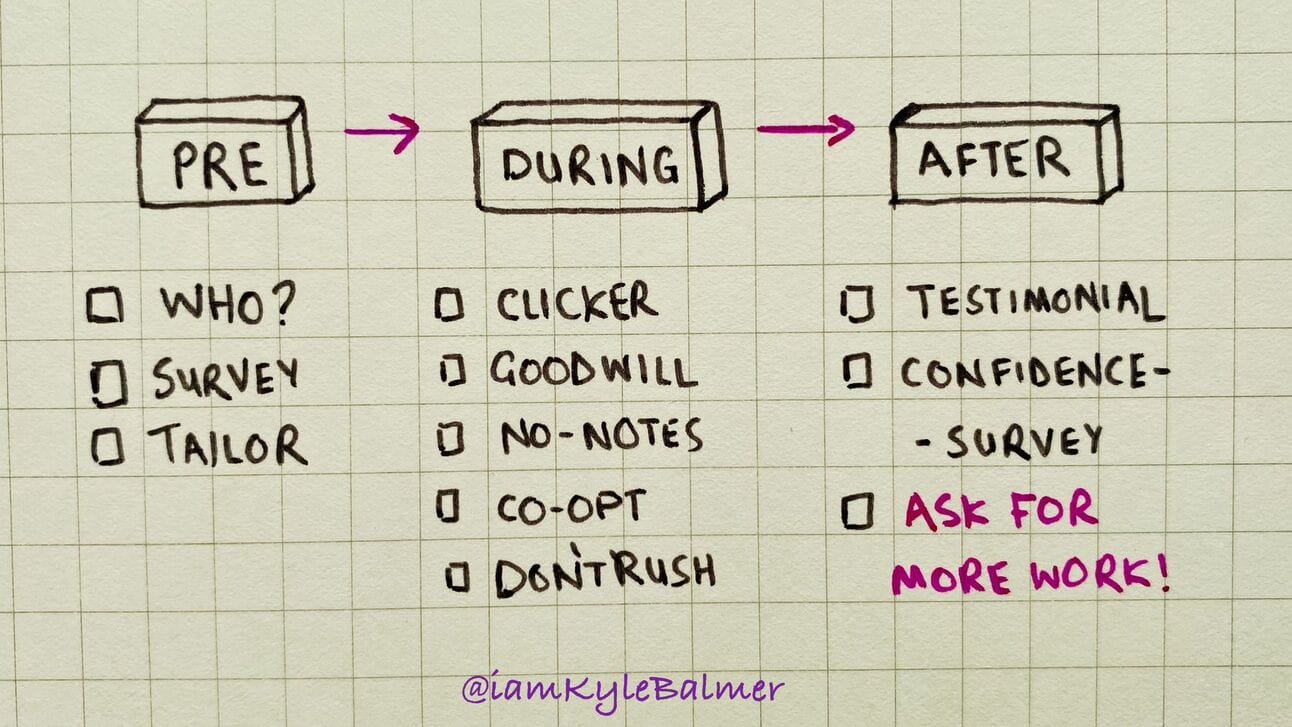 PRE
DURING
AFTER
WHO?
SURVEY
TAILOR
CLICKER
GOODWILL
NO-NOTES
CO-OPT
DON'T RUSH
TESTIMONIAL
CONFIDENCE-
-SURVEY
ASK FOR
MORE WORK!
@iamKyleBalmer